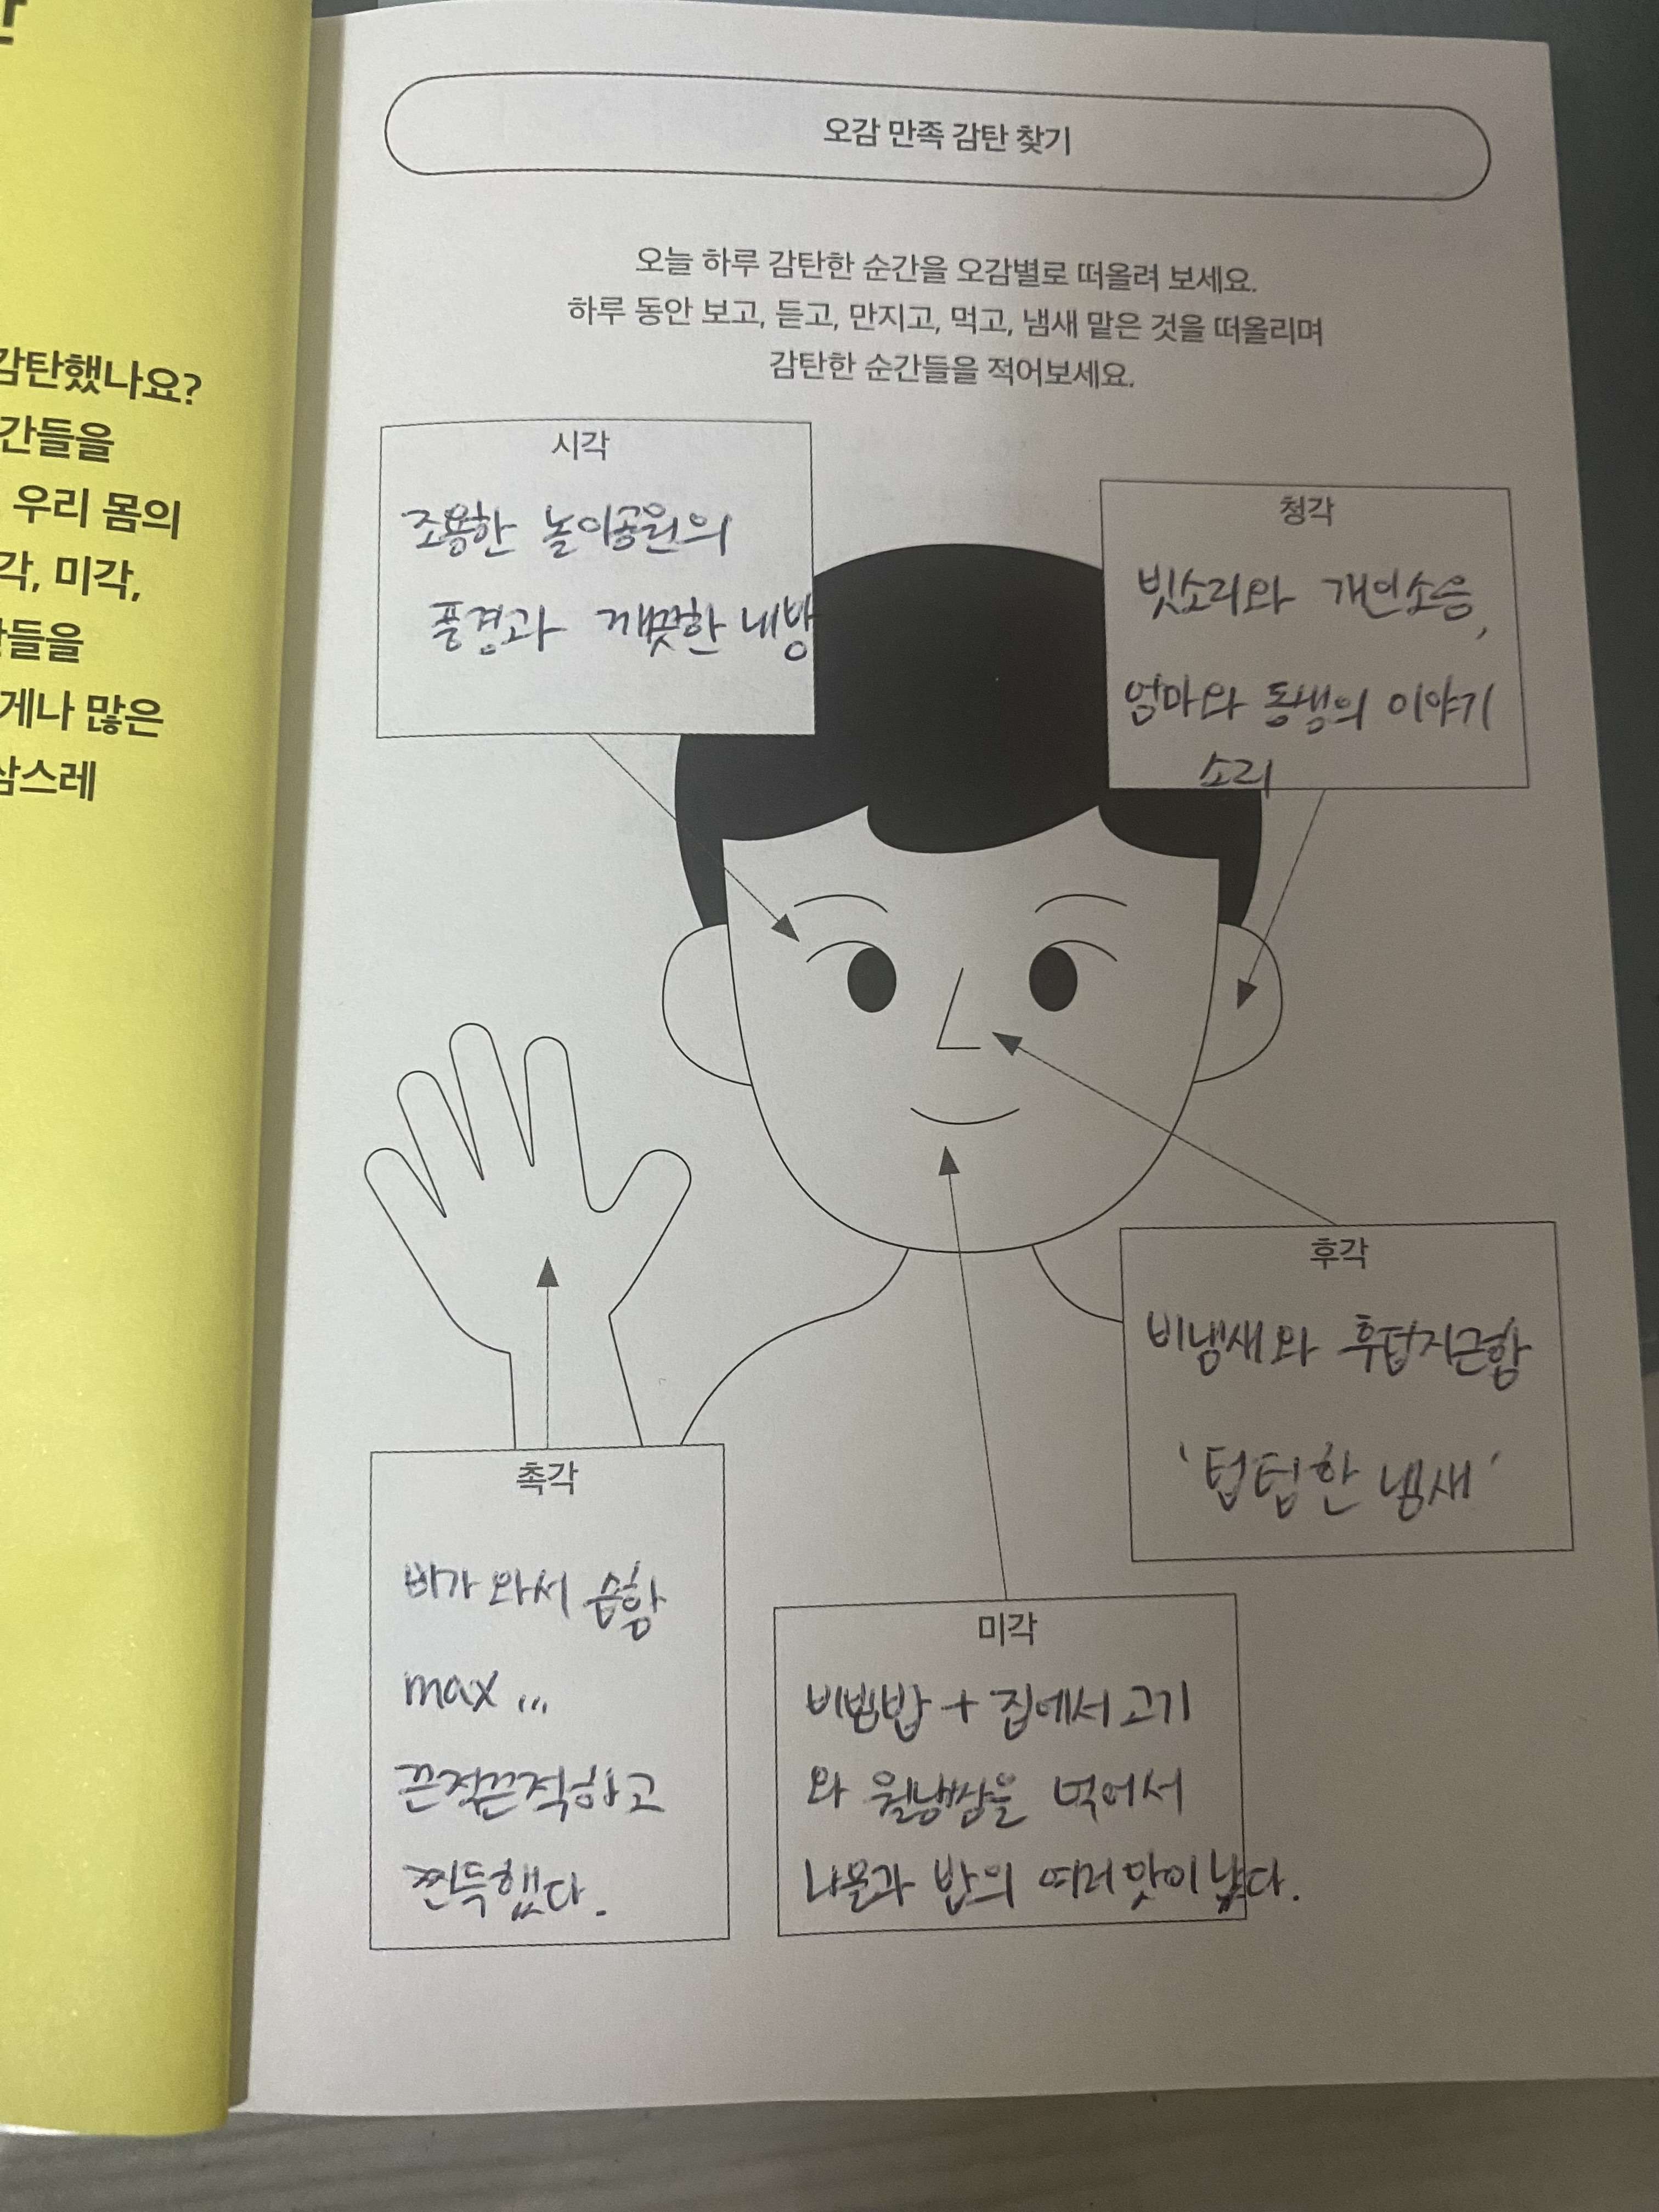 감탄했나요?
간들을
우리 몸의
각, 미각,
들을
게나 많은
삼스레
오감 만족 감탄 찾기
오늘 하루 감탄한 순간을 오감별로 떠올려 보세요.
하루 동안 보고, 듣고, 만지고, 먹고, 냄새 맡은 것을 떠올리며
감탄한 순간들을 적어보세요.
시각
조용한 놀이공원의
풍경과 깨끗한 내방
청각
빗소리와 개인소음,
엄마와 동생의 이야기
소리
후각
비냄새와 후덥지근함
'텁텁한 냄새'
촉각
비가 와서 습함
max ...
끈적끈적하고
찐득했다.
미각
비빔밥 + 집에서 고기
와 월남쌈을 먹어서
나물과 밥의 여러맛이 났다.